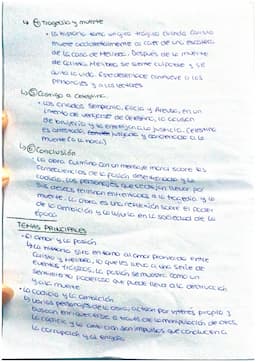 ↳ ④ Tragedia y muerte
• La historia toma un giro trágico cuando Calisto
muere accidentalmente al caer de una escalera
de la casa de Melibea. Después de la muerte
de Calisto, Melibea se siente culpable y se
quita la vida. Este desenlace conmueve a los
personajes y a los lectores
↳ ⑤ Castigo a Celestina
• Los criados Sempronio, Elicia y Areusa, en un
intento de vengarse de Celestina, la acusan
de brujería y la entregan a la justicia. Celestina
es arrestada, juzgada y condenada a la
muerte (a la horca)
↳ ⑥ Conclusión
• La obra culmina con un mensaje moral sobre las
consecuencias de la pasión desenfrenada y la
codicia. Los personajes que se dejan llevar por
sus deseos terminan enfrentados a la tragedia y la
muerte. La obra es una reflexión sobre el poder
de la ambición y la lujuria en la sociedad de la
época
TEMAS PRINCIPALES
El amor y la pasión
↳ La historia gira en torno al amor prohibido entre
Calisto y Melibea, lo que les lleva a una serie de
eventos trágicos. La pasión se muestra como un
sentimiento poderoso que puede llevar a la destrucción
y a la muerte.
• La codicia y la ambición
↳ Varios personajes de la obra, actúan por interés propio y
buscan enriquecerse a través de la manipulación de otros.
La codicia y la ambición son impulsos que conducen a
la corrupción y al engaño